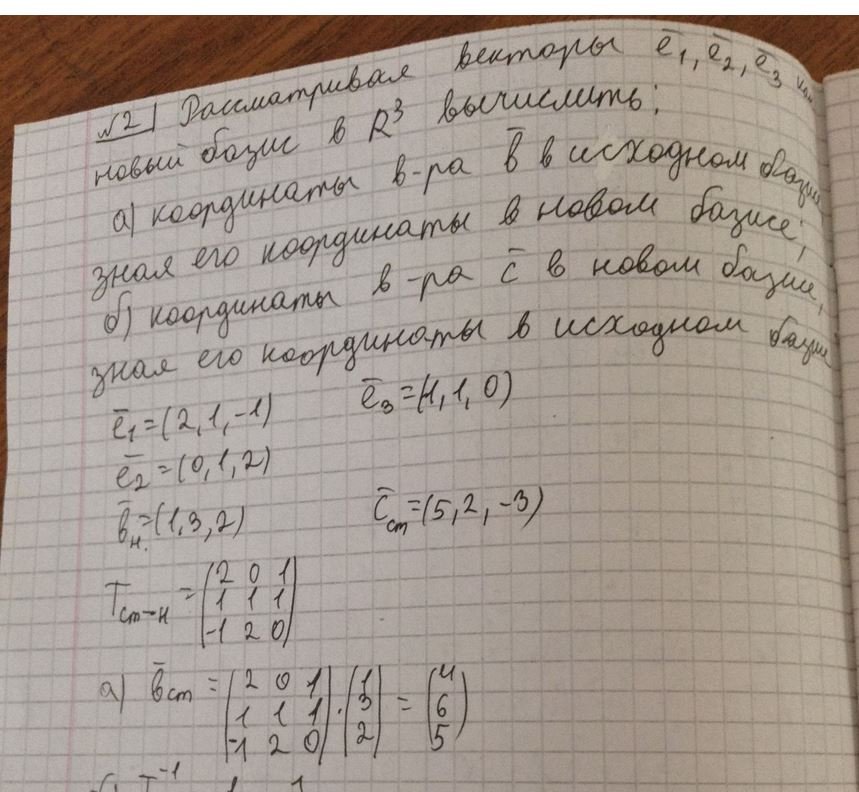 №2 Рассматривая векторы ē₁, ē₂, ē₃ как
новый базис в R³ вычислить:
а) координаты в-ра b̄ в исходном базисе
зная его координаты в новом базисе;
б) координаты в-ра c̄ в новом базисе,
зная его координаты в исходном базисе
ē₁=(2,1,-1) ē₃=(1,1,0)
ē₂=(0,1,2)
b̄н.=(1,3,2) c̄ст=(5,2,-3)
Tст→н = (2 0 1
1 1 1
-1 2 0)
а) b̄ст = (2 0 1
1 1 1
-1 2 0) · (1
3
2) = (4
6
5)